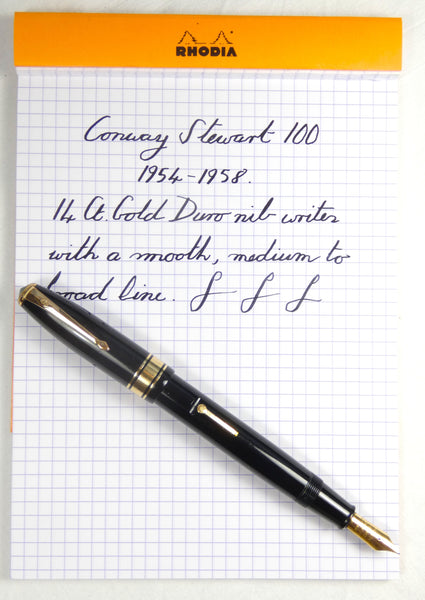 RHODIA
Conway Stewart 100
1954-1958.
14 Ct. Gold Duro nib writes
with a smooth, medium to
broad line.